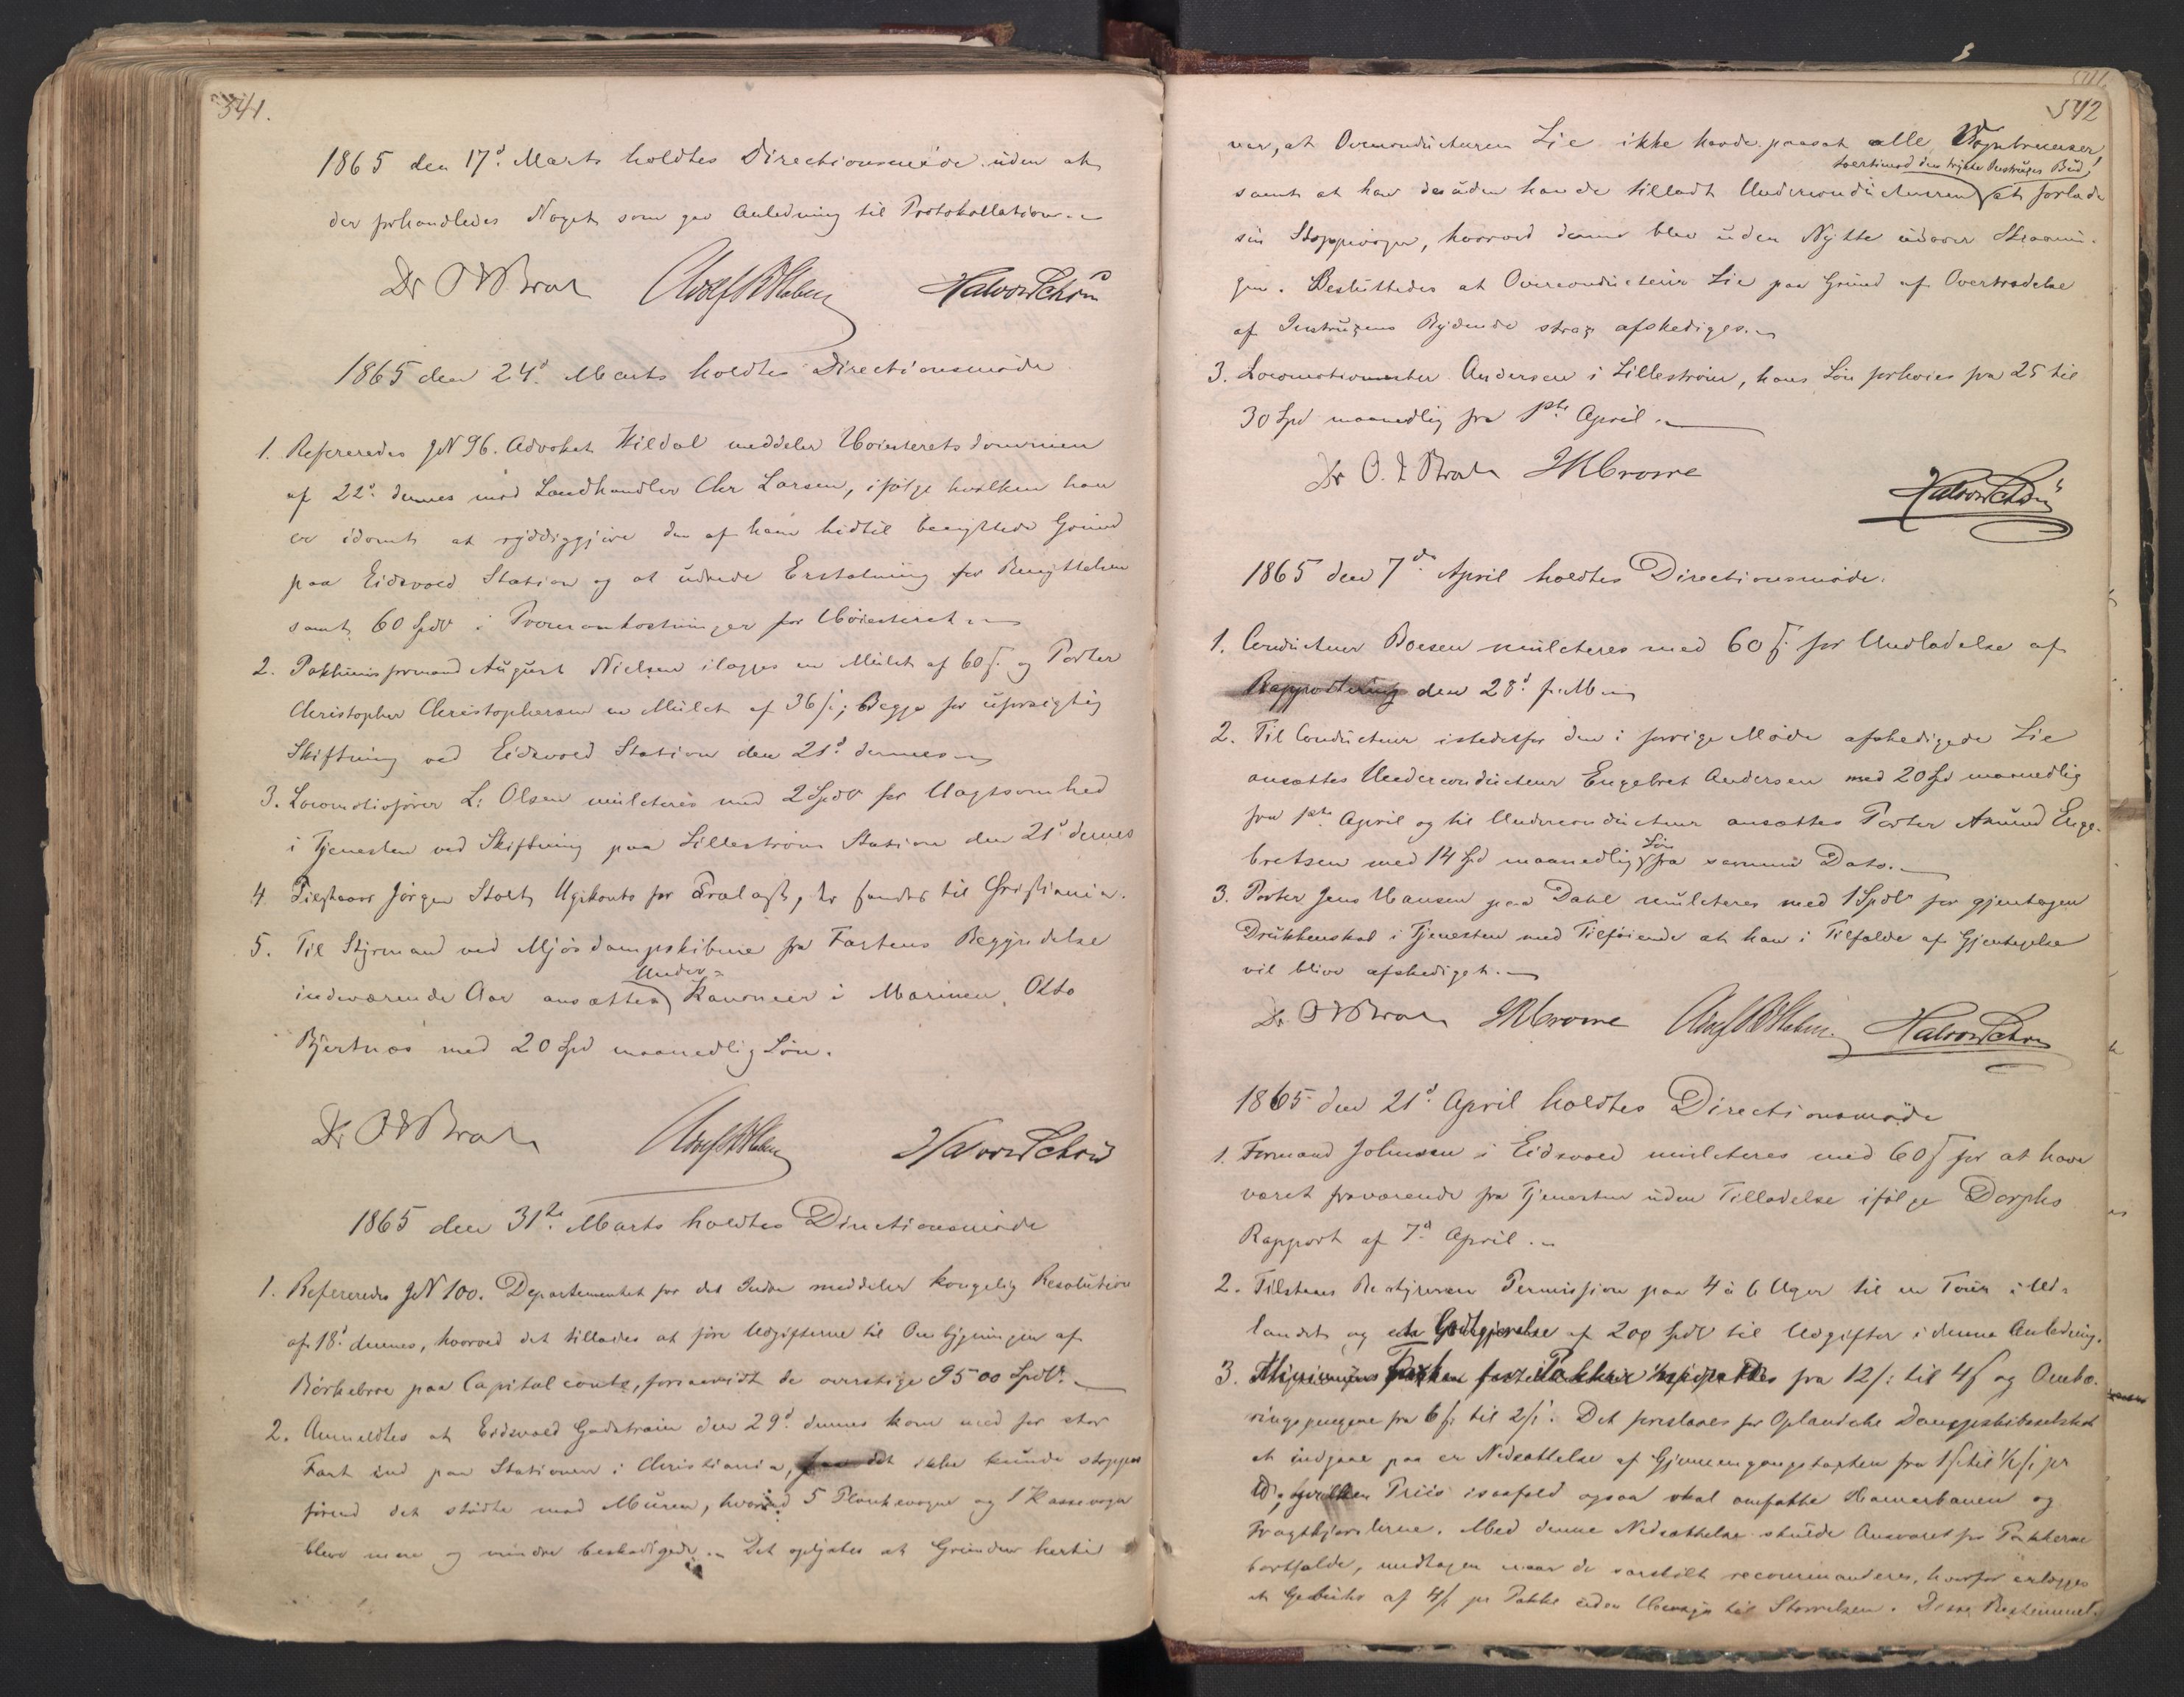 541.
1865 den 17d. Marts holdtes Directionsmøde uden at
der forhandledes Noget som gav Anledning til Protokollation.
Dr O. J. Broch Halvor Schou
1865 den 24d. Marts holdtes Directionsmøde
1. Refereredes JN 96. Advokat Hildal meddeler Høiesteretsdommen
af 22d. dennes mod Landhandler Chr Larsen, ifølge hvilken han
er idømt at ryddiggjøre den af ham hidtil benyttede Grund
paa Eidsvold Station og at udrede Erstatning for Benyttelsen
samt 60 Spdlr i Procesomkostninger for Høiesteret.
2. Pakhuusformand August Nielsen ilægges en Mulct af 60 ß. og Porter
Christopher Christophersen en Mulct af 36 ß; Begge for uforsigtig
Skiftning ved Eidsvold Station den 21d. dennes.
3. Locomotivfører L. Olsen mulcteres med 2 Spdlr for Uagtsomhed
i Tjenesten ved Skiftning paa Lillestrøm Station den 21d dennes
4. Tilstaaes Jørgen Stoltz Ugikonto for , der sendes til Christiania.
5. Til Styrmand ved Mjøsdampskibene fra Fartens Begyndelse
Under-
indeværende Aar ansættes Kanoneer i Marinen, Otto
Bjertnæs med 20 Spd maanedlig Løn.
Dr O. J. Broch Halvor Schou
1865 den 31te. Marts holdtes Directionsmøde
1. Refereredes JN 100. Departementet for det Indre meddeler kongelig Resolution
af 18d. dennes, hvorved det tillades at føre Udgifterne til Ombygningen af
Børkebroe paa Capitalconto, forsaavidt de overstige 9500 Spdlr.
2. Anmeldtes at Eidsvold Godstrain den 29d. dennes kom med for stor
Fart ind paa Stationen i Christiania, saa det ikke kunde stoppes
førend det stødte mod Muren, hvorved 5 Plankevogne og 1 Kassevogn
bleve mere og mindre beskadigede. Det oplystes at Grunden hertil
542
var, at Overconducteuren Lie ikke havde passet alle Vognbremser
tvertimod den trykte Instruxes Bud,
samt at han desuden havde tilladt Underconducteuren at forlade
sin Stoppevogn, hvorved denne blev uden Nytte udover Skraanin-
gen. Besluttedes at Overconducteur Lie paa Grund af Overtrædelse
af Instruxens Bydende strax afskediges.
3. Locomotivmester Andersen i Lillestrøm, hans Løn forhøies fra 25 til
30 Spd maanedlig fra 1ste April.
Dr O. J. Broch JRCrowe Halvor Schou
1865 den 7de April holdtes Directionsmøde.
1. Conducteur Boesen mulcteres med 60 ß. for Undladelse af
Rapportering den 28d. f. M.
2. Til Conducteur istedetfor den i forrige Møde afskedigede Lie
ansættes Underconducteur Engebret Andersen med 20 Spd maanedlig
fra 1ste April og til Underconducteur ansættes Porter Amund Enge-
Løn
bretsen med 14 Spd maanedlig fra samme Dato.
3. Porter Jens Hansen paa Dahl mulcteres med 1 Spdlr for gjentagen
Drukkenskab i Tjenesten med Tilføiende at han i Tilfælde af Gjentagelse
vil blive afskediget.
Dr O. J. Broch JRCrowe Halvor Schou
1865 den 21d. April holdtes Directionsmøde
1. Formand Johnsen i Eidsvold mulcteres med 60 ß for at have
været fraværende fra Tjenesten uden Tilladelse ifølge Dorphs
Rapport af 7d April.
2. Tilstaaes Bestyreren Permission paa 4 à 6 Uger til en Tour i Ud-
landet og en Godtgjørelse af 200 Spdlr til Udgifter i denne Anledning.
3. Minimums Taxten for Pakker nedsættes fra 12 ß: til 4 ß og Ombæ-
ringspengene fra 6 ß. til 2 ß. Det foreslaaes for Oplandske Dampskibsselskab
at indgaae paa en Nedsættelse af Gjennemgangstaxten fra 1 ß til ½ ß pr
, hvilken Priis isaafald ogsaa skal omfatte Hamarbanen og
Fragtkjørslerne. Med denne Nedsættelse skulde Ansvaret for Pakkerne
bortfalde, undtagen naar de særskilt recommanderes, hvorfor erlægges
et Gebuhr af 4 ß pr Pakke uden Hensyn til Størrelsen. Disse Bestemmel-